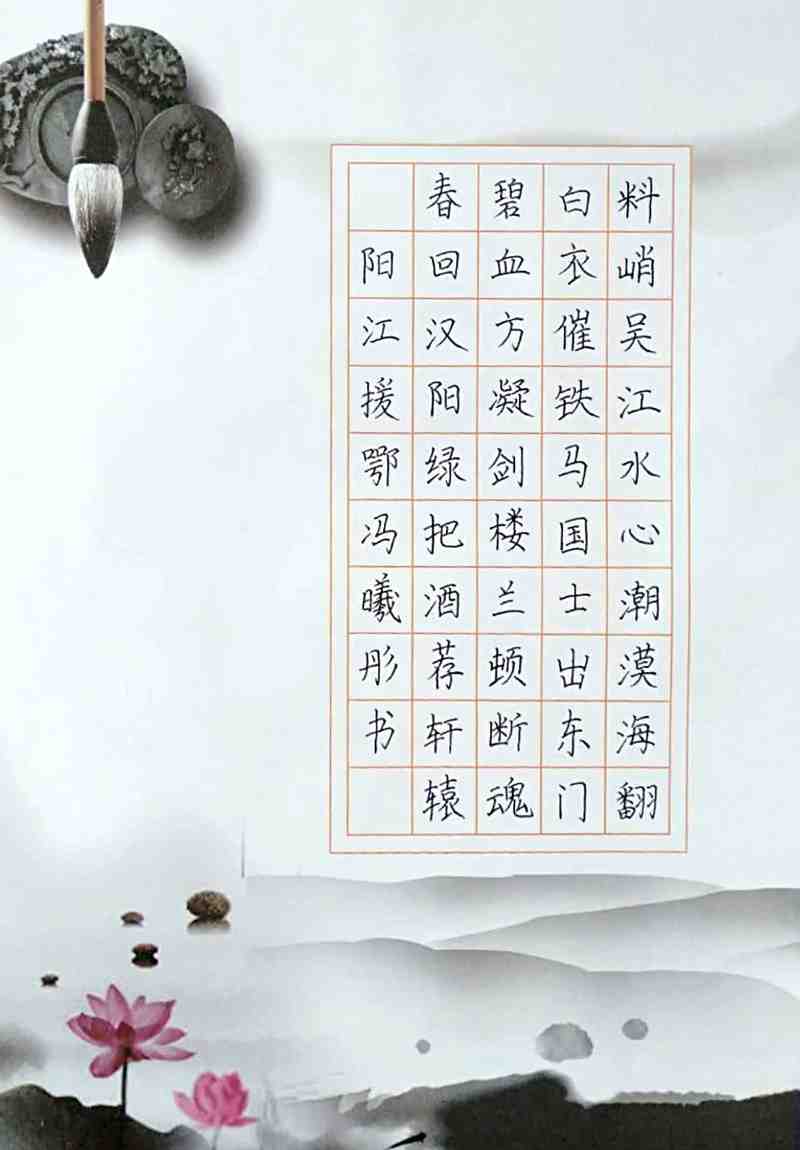 料峭吴江水心潮漠海翻
白衣催铁马国士出东门
碧血方凝剑楼兰顿断魂
春回汉阳绿把酒荐轩辕
阳江援鄂冯曦彤书